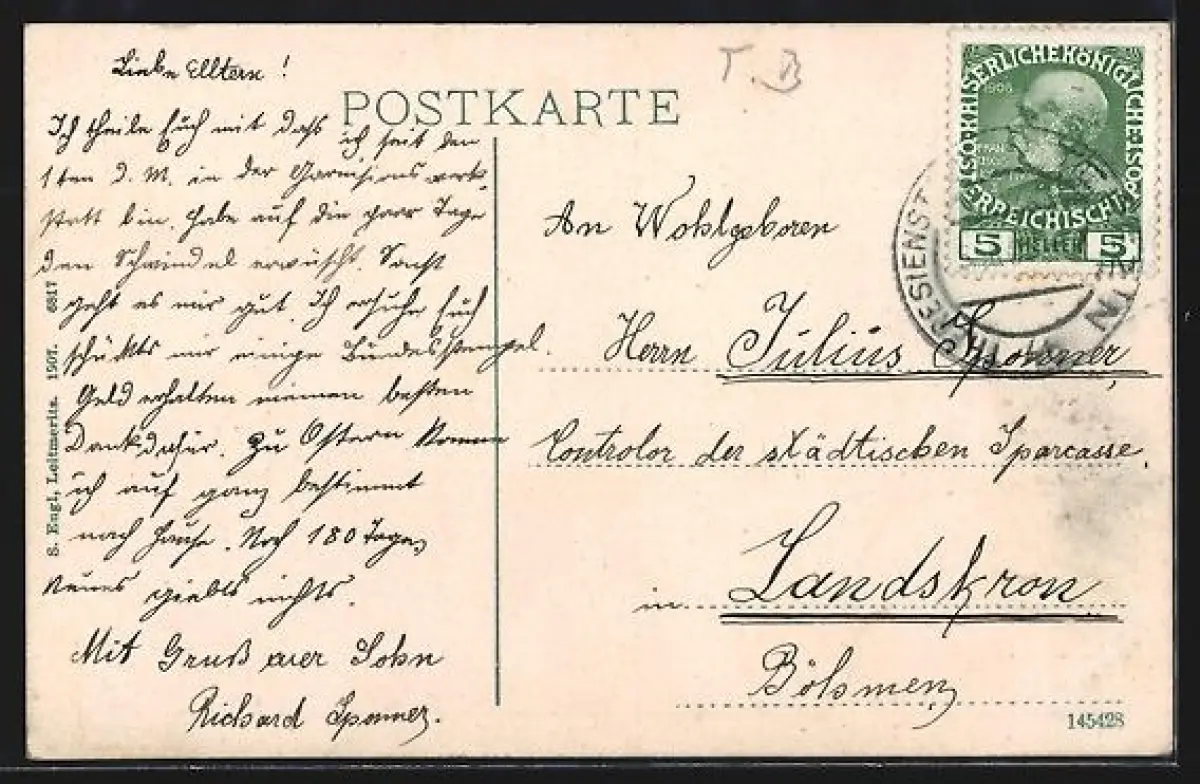 T. B
POSTKARTE
Liebe Elltern!
Ich theile Euch mit dass ich seit den
1ten d. M. in der Garnisions werk-
statt bin. Habe auf die paar Tage
den Schwindel erwischt. Sonst
geht es mir gut. Ich ersuche Euch
schükts mir einige Bundesstempel.
Geld erhalten meinen besten
Dank dafür. Zu Ostern komme
ich auf ganz bestimmt
nach Hause. Noch 180 Tage,
Neues giebts nichts.
Mit Gruß euer Sohn
Richard Sponner.
S. Engl, Leitmeritz. 1907. 6817
ÖSTERREICHISCHE
KAISERLICHE KÖNIGLICHE
1908
5 HELLER 5
RESIENST
An Wohlgeboren
Herrn Julius Sponner,
Controlor der städtischen Sparcasse,
in Landskron
Böhmen,
145428